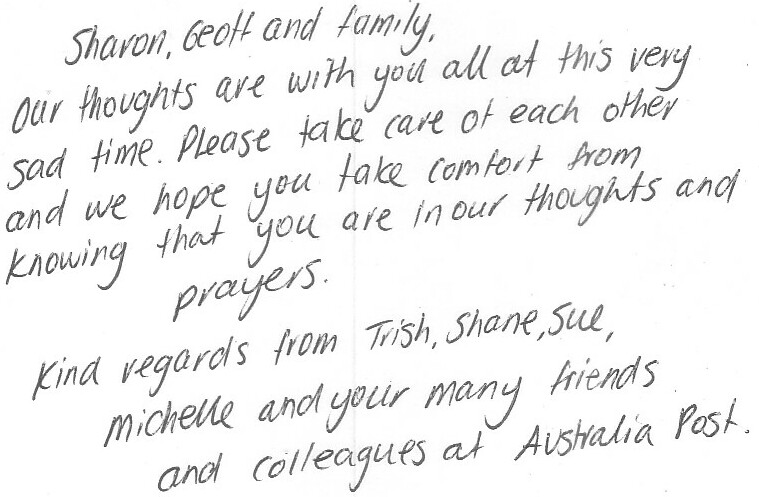 Sharon, Geoff and family,
Our thoughts are with you all at this very
sad time. Please take care of each other
and we hope you take comfort from
knowing that you are in our thoughts and
prayers.
Kind regards from Trish, Shane, Sue,
Michelle and your many friends
and colleagues at Australia Post.